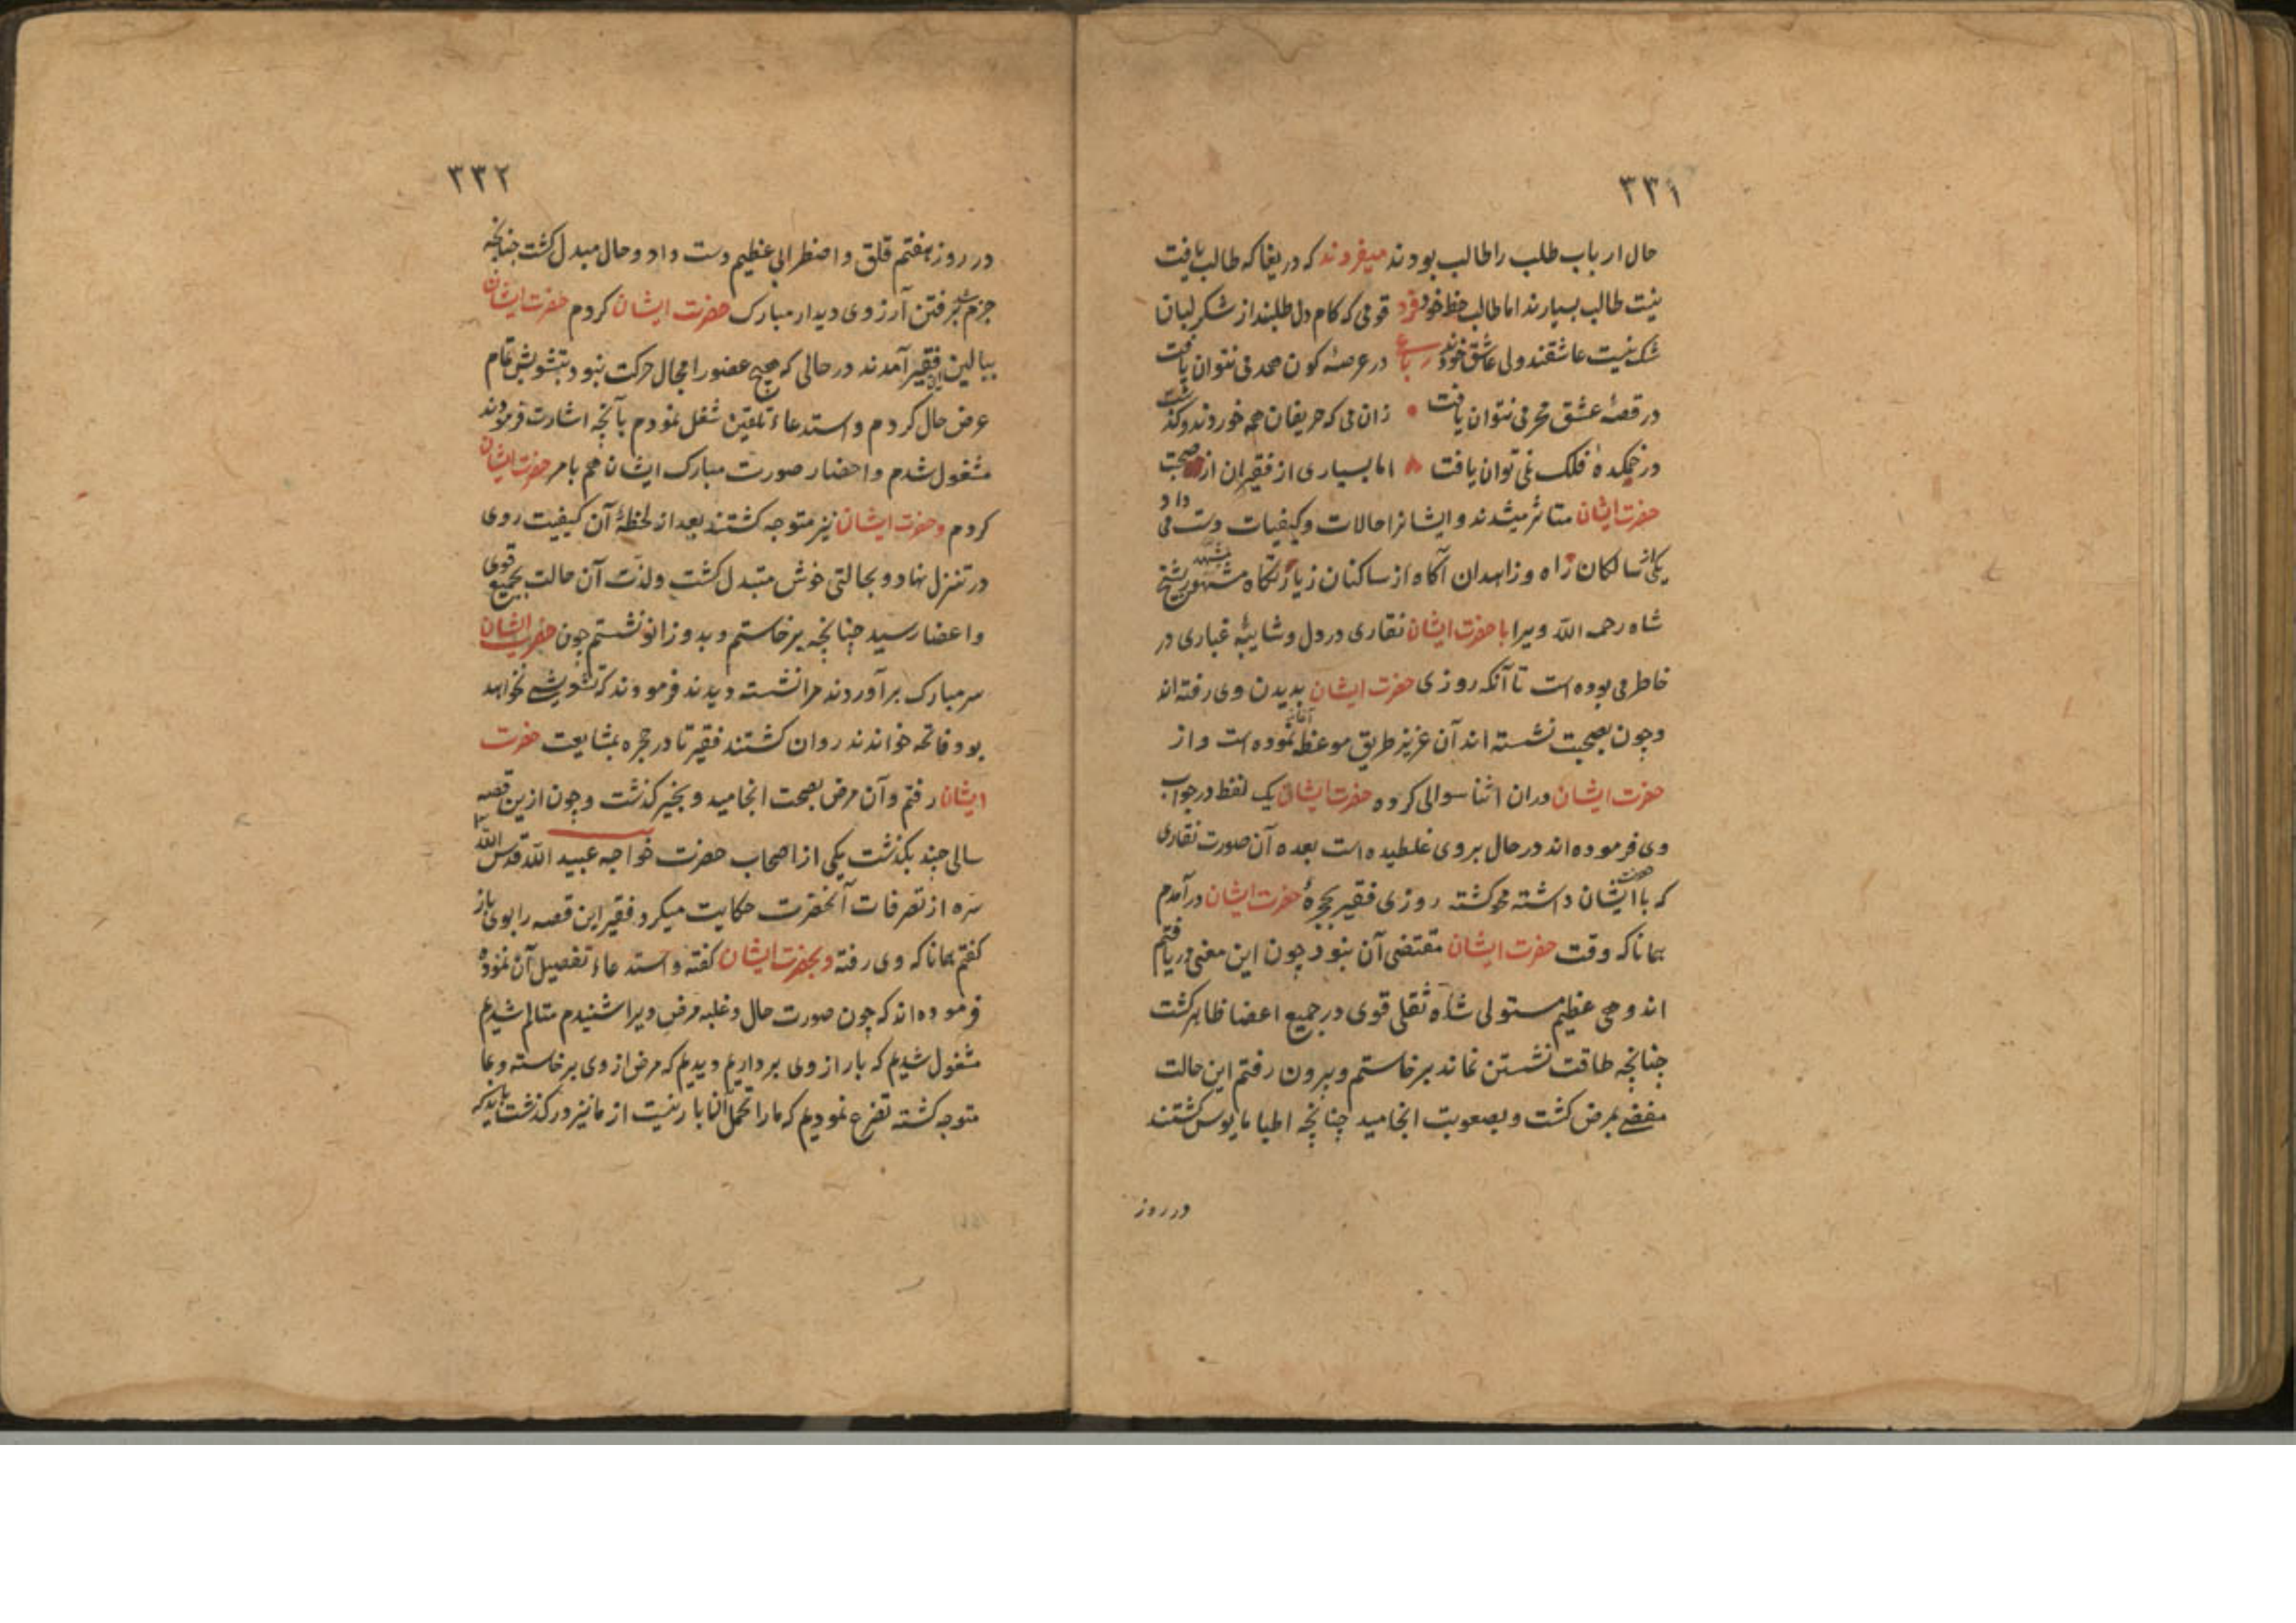 ٣٣١
حال ارباب طلب را طالب بودند میفرمودند که دریغا که طالب یافت
نیست طالب بسیارند اما طالب حظ خود فرد قومی که کام دل طلبند از شکر لبان
شک نیست عاشقند ولی عاشق خودند رباعی در عرصهٔ کون همدمی نتوان یافت
در قصهٔ عشق محرمی نتوان یافت زان می که حریفان همه خوردند و گذشت
در خمکدهٔ فلک نمی توان یافت اما بسیاری از فقیران از صحبت
حضرت ایشان متاثر میشدند و ایشانرا حالات و کیفیات دست می داد
یکی از سالکان راه و زاهدان آگاه از ساکنان زیارتگاه مشهور بشیخ
شاه رحمه الله ویرا با حضرت ایشان نقاری در دل و شایبهٔ غباری در
خاطر می بوده است تا آنکه روزی حضرت ایشان بدیدن وی رفته اند
و چون بصحبت نشسته اند آن عزیز طریق موعظه آغاز نموده است و از
حضرت ایشان دران اثنا سوالی کرده حضرت ایشان یک لفظ در جواب
وی فرموده اند در حال بروی غلطیده است بعده آن صورت نقاری
که با حضرت ایشان داشته محو کشته روزی فقیر بحجرهٔ حضرت ایشان درآمدم
همانا که وقت حضرت ایشان مقتضی آن نبود چون این معنی دریافتم
اندوهی عظیم مستولی شد و ثقلی قوی در جمیع اعضا ظاهر کشت
چنانچه طاقت نشستن نماند برخاستم و بیرون رفتم این حالت
مفضی بمرض کشت و بصعوبت انجامید چنانچه اطبا مایوس کشتند
در روز
٣٣٢
در روز هفتم قلق و اضطرابی عظیم دست داد و حال مبدل کشت چنانچه
جزم شد برفتن آرزوی دیدار مبارک حضرت ایشان کردم حضرت ایشان
ببالین این فقیر آمدند در حالی که هیچ عضو را مجال حرکت نبود بتشویش تمام
عرض حال کردم و استدعاء تلقین شغل نمودم بآنچه اشارت فرمودند
مشغول شدم و احضار صورت مبارک ایشان هم بامر حضرت ایشان
کردم و حضرت ایشان نیز متوجه کشتند بعد از لحظهٔ آن کیفیت روی
در تنزل نهاد و بحالتی خوش متبدل کشت و لذت آن حالت بجمیع قوی
و اعضا رسید چنانچه برخاستم و بدو زانو نشستم چون حضرت ایشان
سر مبارک برآوردند مرا نشسته دیدند فرمودند که تشویشی نخواهد
بود و فاتحه خواندند روان کشتند فقیر تا در حجره بمشایعت حضرت
ایشان رفتم و آن مرض بصحت انجامید و بخیر کذشت و چون ازین قصه
سالی چند بکذشت یکی از اصحاب حضرت خواجه عبید الله قدس الله
سره از تصرفات آنحضرت حکایت میکرد فقیر این قصه را بوی باز
کفتم همانا که وی رفته و بحضرت ایشان کفته و استدعاء تفصیل آن نموده
فرموده اند که چون صورت حال و غلبه مرض ویرا شنیدم متالم شدیم
مشغول شدیم که بار از وی برداریم دیدیم که مرض از وی برخاسته و بما
متوجه کشته تضرع نمودیم که ما را تحمل این بار نیست از ما نیز درکذشت